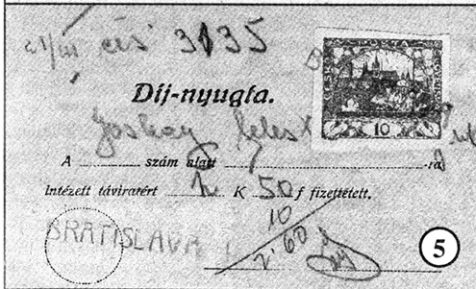 21/III čís 3135
Díj-nyugta.
POŠTA
10
A szám alatt -ra
intézett táviratért 2 K 50 f fizettetett.
10
2·60
BRATISLAVA 1
5